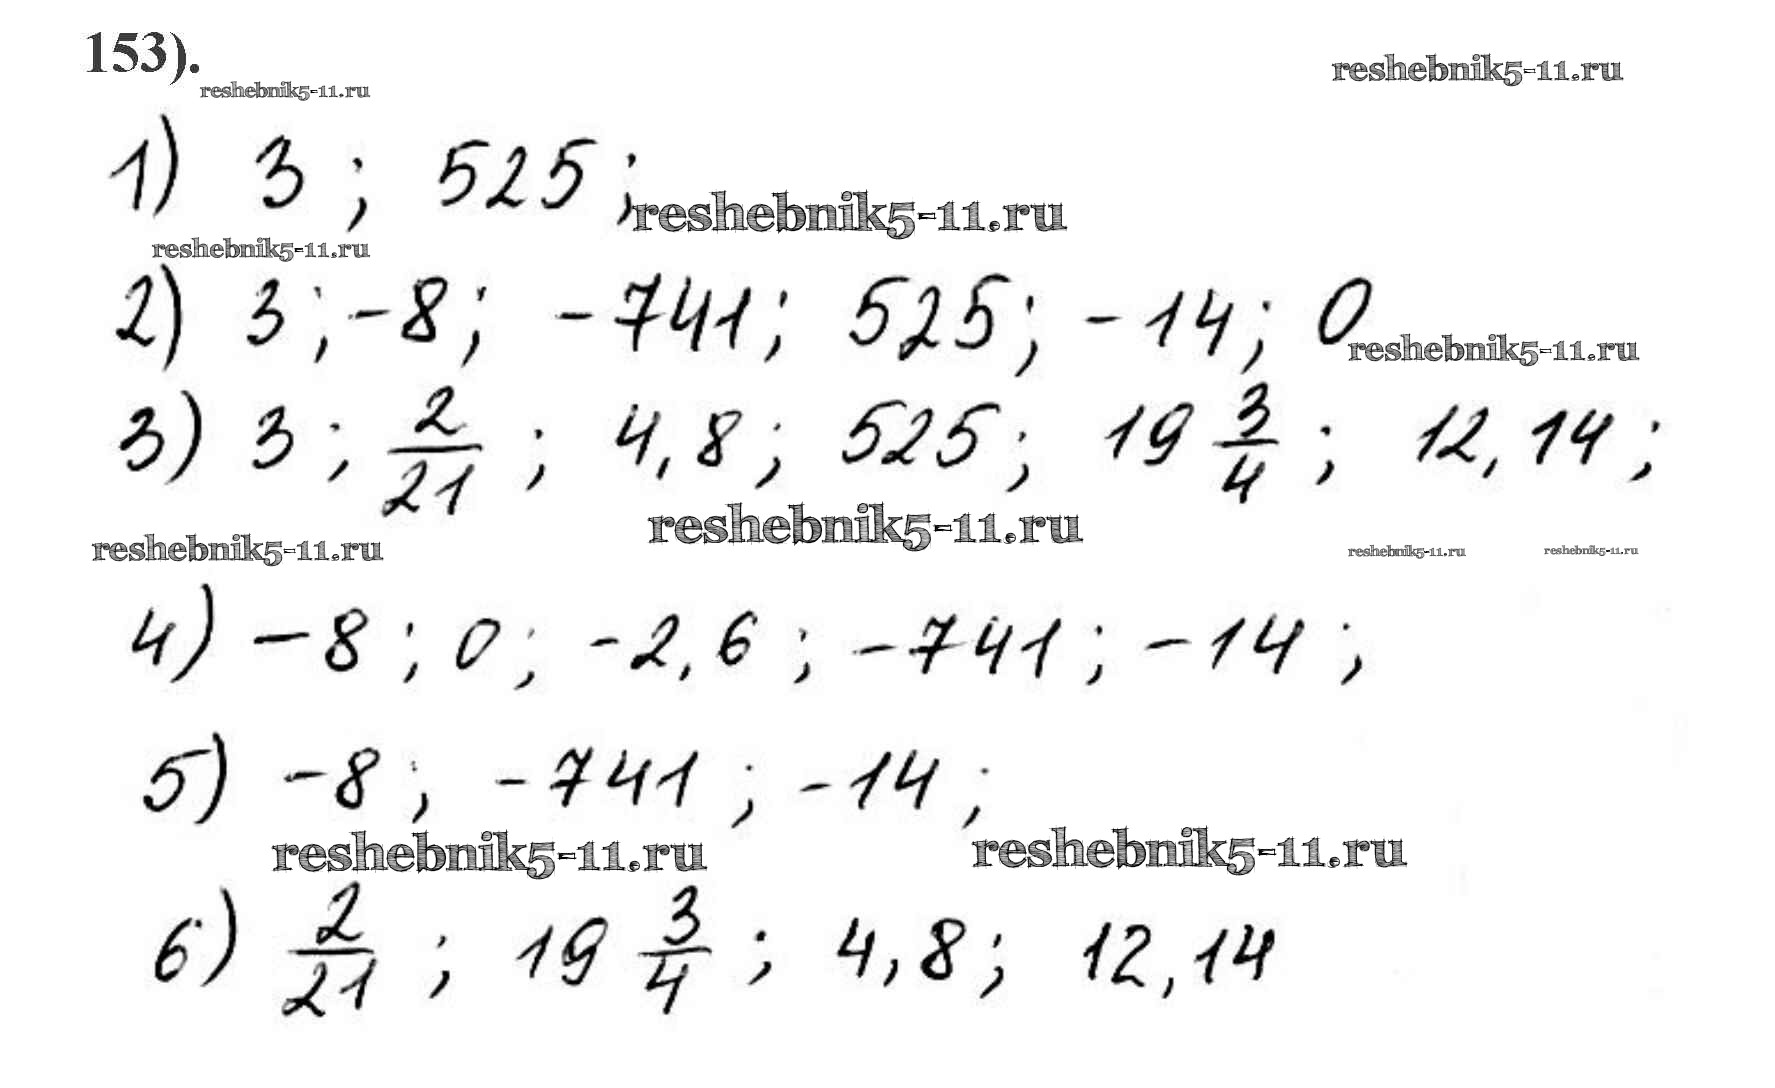 153).
reshebnik5-11.ru
reshebnik5-11.ru
1) 3 ; 525 ;
reshebnik5-11.ru
reshebnik5-11.ru
2) 3 ; -8 ; -741 ; 525 ; -14 ; 0
reshebnik5-11.ru
3) 3 ; 2/21 ; 4,8 ; 525 ; 19 3/4 ; 12,14 ;
reshebnik5-11.ru
reshebnik5-11.ru
reshebnik5-11.ru
reshebnik5-11.ru
4) -8 ; 0 ; -2,6 ; -741 ; -14 ;
5) -8 ; -741 ; -14 ;
reshebnik5-11.ru
reshebnik5-11.ru
6) 2/21 ; 19 3/4 ; 4,8 ; 12,14